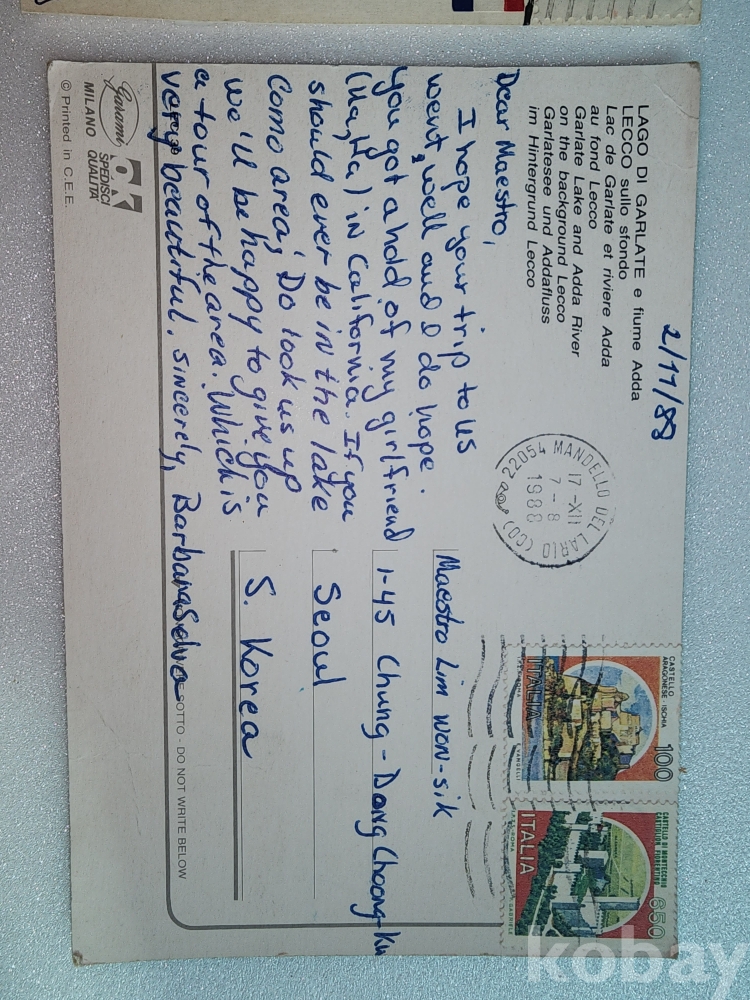 LAGO DI GARLATE e fiume Adda
LECCO sullo sfondo
Lac de Garlate et riviere Adda
au fond Lecco
Garlate Lake and Adda River
on the background Lecco
Garlatesee und Addafluss
im Hintergrund Lecco
2/11/88
Dear Maestro,
I hope your trip to US
went, well and I do hope.
you got a hold of my girlfriend
(Ha, Ha) in California. If you
should ever be in the lake
Como area, Do look us up
we'll be happy to give you
a tour of the area. Which is
very beautiful. Sincerely, Barbara
22054 MANDELLO DEL LARIO (CO)
17-XII
7-8
1988
CASTELLO
ARAGONESE ISCHIA
100
ITALIA
I.P.Z.S. ROMA
E. VANGELLI
650
ITALIA
I.P.Z.S. ROMA
Maestro Lim Won-Sik
1-45 Chung-Dong Choong-Ku
Seoul
S. Korea
SOTTO - DO NOT WRITE BELOW
Garami
MILANO
OK
SPEDISCI
QUALITÀ
© Printed in C.E.E.
kobay